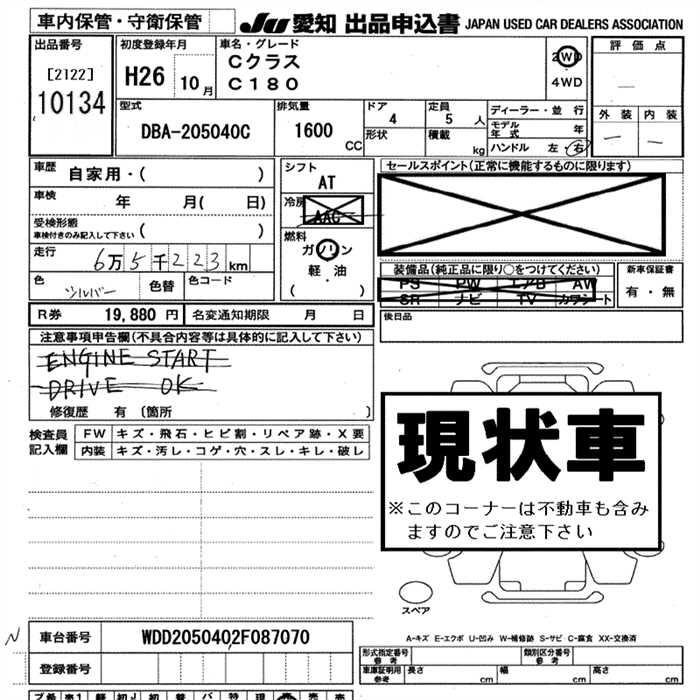 車内保管・守衛保管
JU 愛知 出品申込書 JAPAN USED CAR DEALERS ASSOCIATION
出品番号
[2122]
10134
初度登録年月
H26 10月
車名・グレード
Cクラス
C180
2WD
4WD
評価点
—
外装 内装
— —
型式
DBA-205040C
排気量
1600 CC
ドア
4
形状
定員
5 人
積載
kg
ディーラー・並行
モデル年式 年
ハンドル 左・右
車歴
自家用・( )
車検
年 月( 日)
受検形態
車検付きのみ記入して下さい ( )
走行
6万5千223km
色
シルバー
色替
色コード
シフト
AT
冷房
AAC
燃料
ガソリン
軽・油
( )
セールスポイント(正常に機能するものに限ります)
装備品(純正品に限り○をつけてください)
PS PW エアB AW
SR ナビ TV カワシート
新車保証書
有・無
R券 19,880 円
名変通知期限 月 日
後日品
注意事項申告欄(不具合内容等は具体的に記入して下さい)
ENGINE START
DRIVE OK
修復歴 有 [箇所 ]
検査員記入欄
FW キズ・飛石・ヒビ割・リペア跡・X要
内装 キズ・汚レ・コゲ・穴・スレ・キレ・破レ
現状車
※このコーナーは不動車も含み
ますのでご注意下さい
スペア
A-キズ E-エクボ U-凹み W-補修跡 S-サビ C-腐食 XX-交換済
N
車台番号
WDD2050402F087070
登録番号
形式指定番号
参考
類別区分番号
参考
車庫証明用
参考
長さ cm
幅 cm
高さ cm